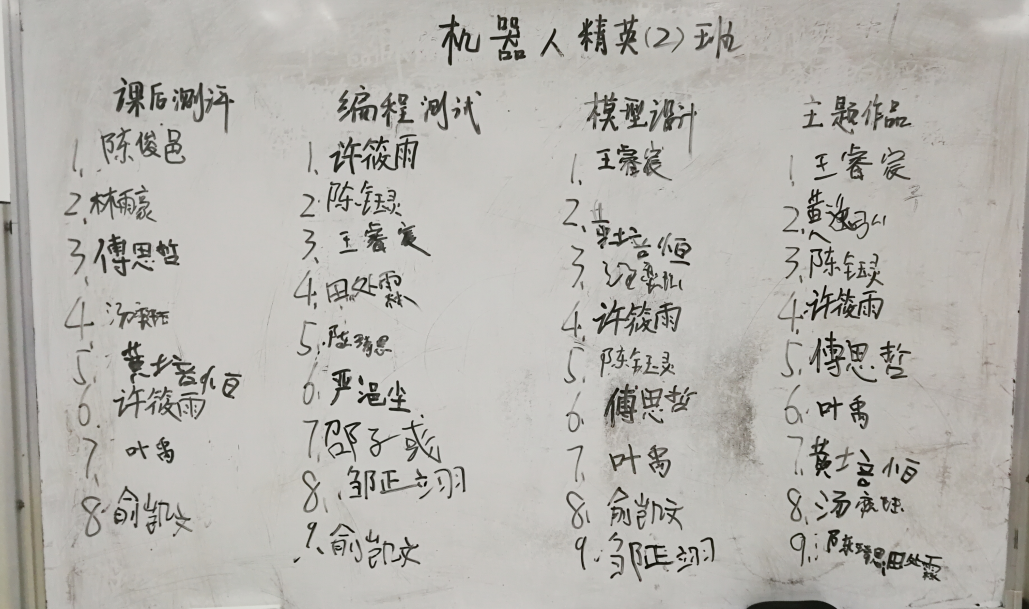 机器人精英(2)班
课后测评
1. 陈俊邑
2. 林雨豪
3. 傅思哲
4. 汤
5. 黄培恒
6. 许筱雨
7. 叶禹
8. 俞凯文
编程测试
1. 许筱雨
2. 陈钰灵
3. 王睿宸
4. 田处霖
5. 陈靖思
6. 严浥尘
7. 邵子彧
8. 邹正翊
9. 俞凯文
模型设计
1. 王睿宸
2. 黄培恒
3.
4. 许筱雨
5. 陈钰灵
6. 傅思哲
7. 叶禹
8. 俞凯文
9. 邹正翊
主题作品
1. 王睿宸
2. 黄
3. 陈钰灵
4. 许筱雨
5. 傅思哲
6. 叶禹
7. 黄培恒
8. 汤
9. 陈靖思 田处霖